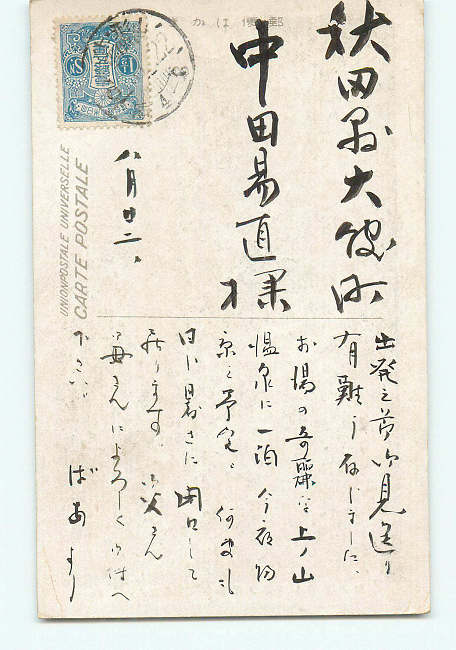 郵便はかき
秋田県大館町
中田易直様
八月廿二、
UNIONPOSTALE UNIVERSELLE
CARTE POSTALE
出発之節ハ見送り
有難う存じました、
お湯の奇麗な上ノ山
温泉に一泊 今夜
京之予定 何分
日に暑さに 閉口して
居ります、御父さん
母さんによろしく
下さい、 ばあより